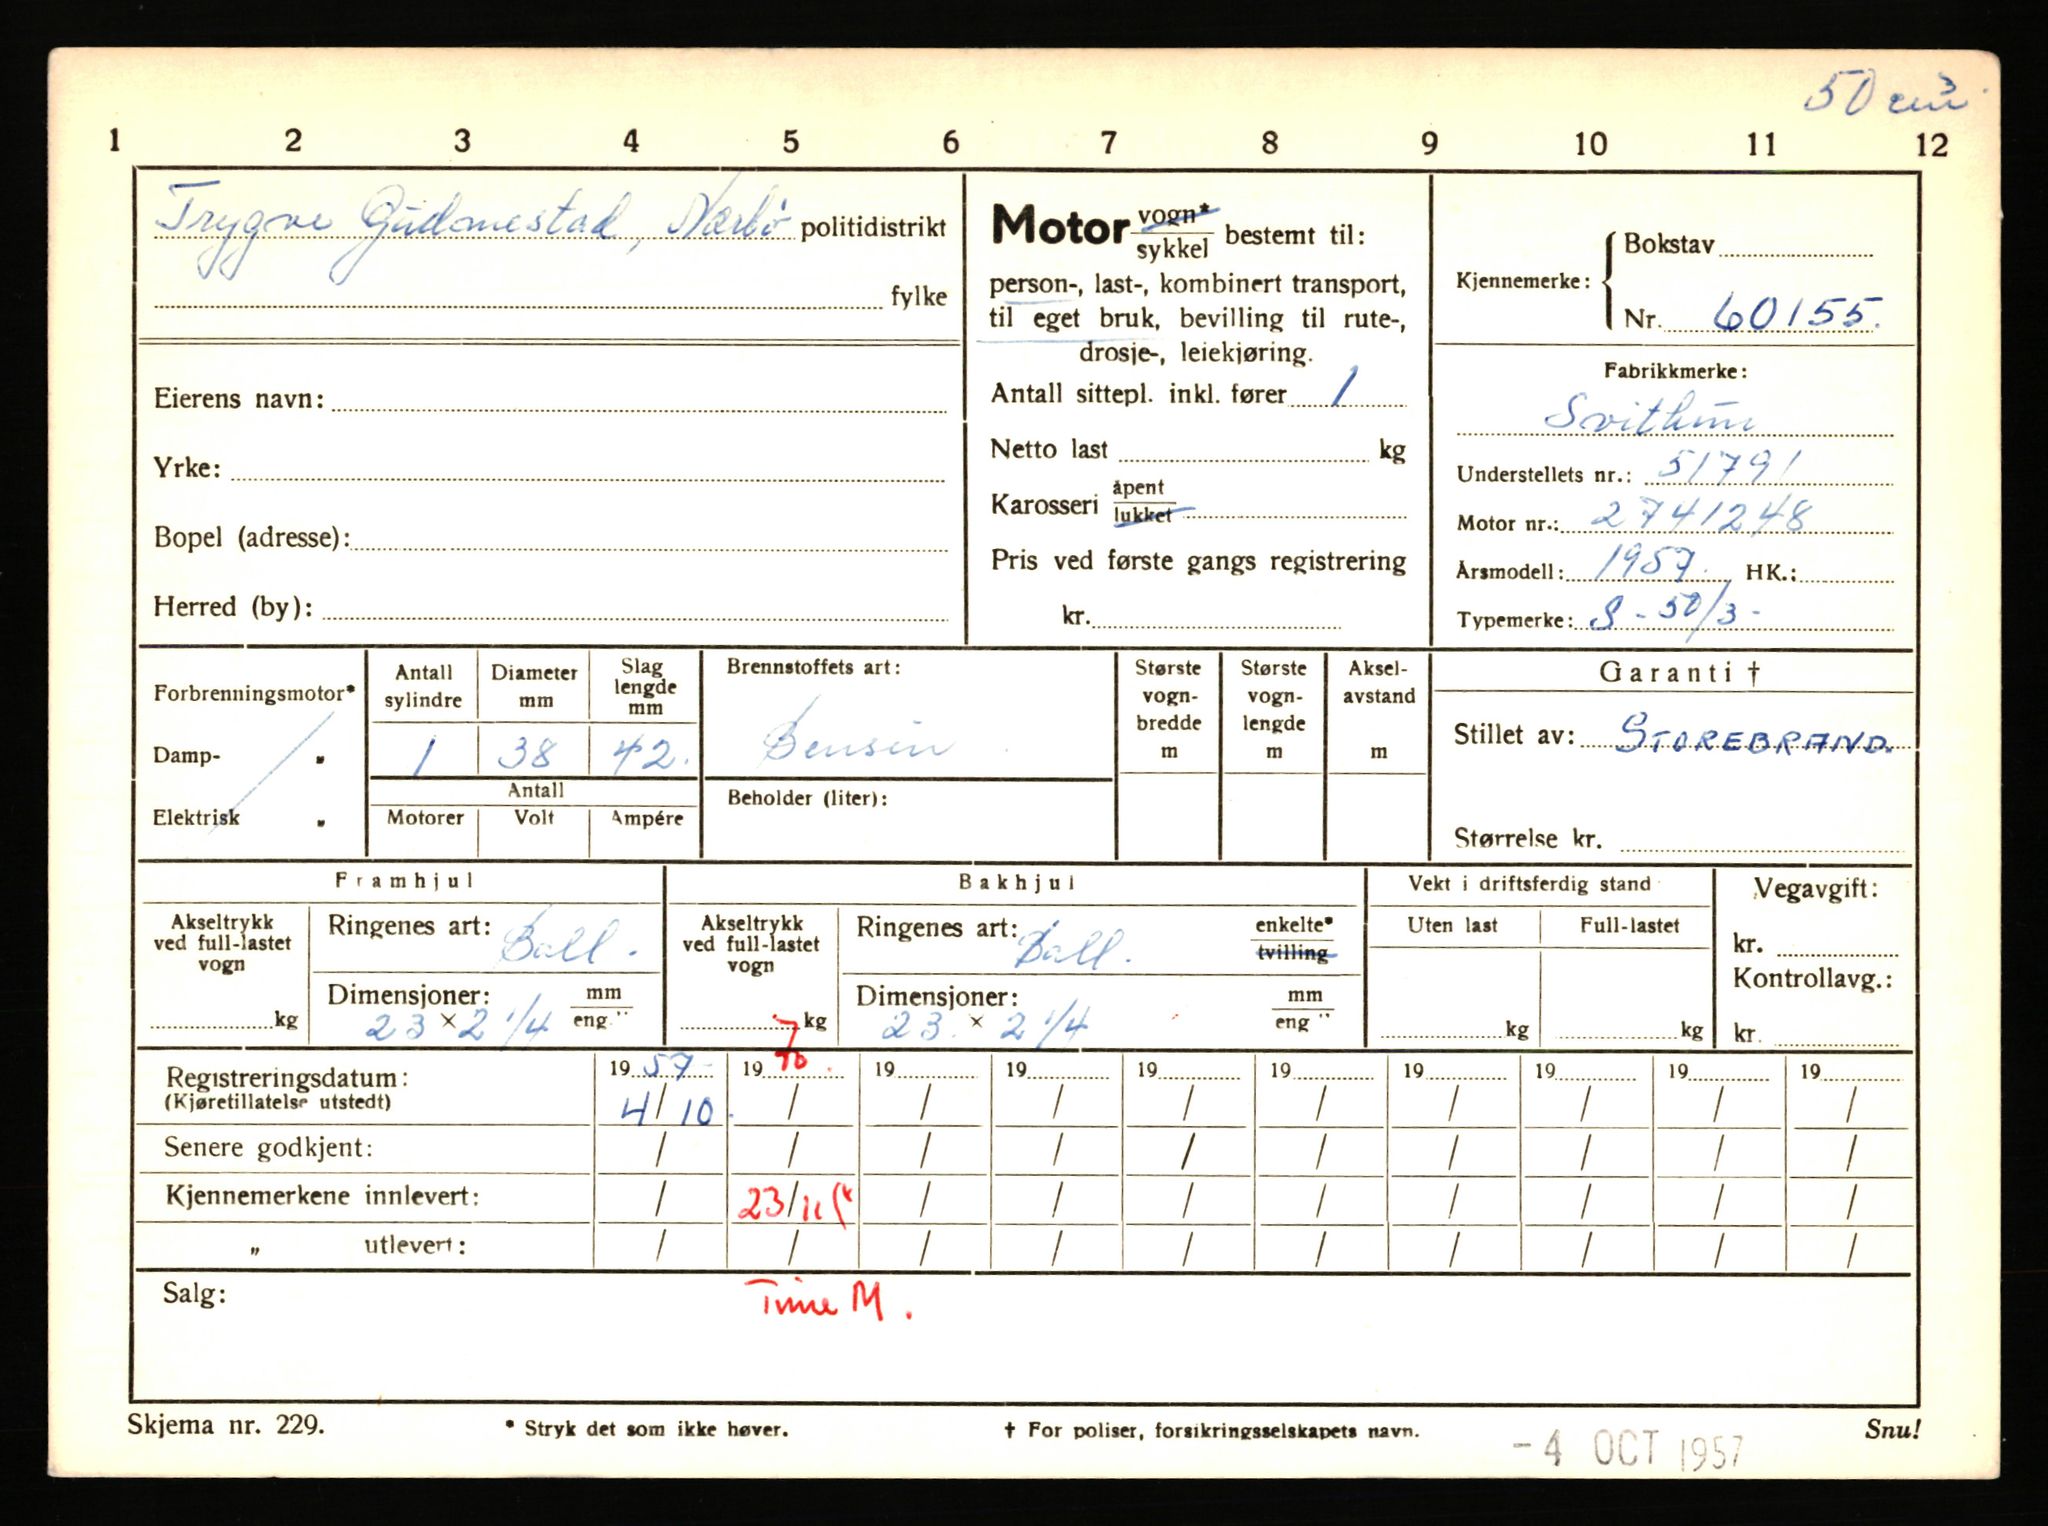 50 cm³
1 2 3 4 5 6 7 8 9 10 11 12
Trygve Gudmestad, Nærbø politidistrikt
fylke
Eierens navn:
Yrke:
Bopel (adresse):
Herred (by):
Motor vogn* / sykkel bestemt til:
person-, last-, kombinert transport,
til eget bruk, bevilling til rute-,
drosje-, leiekjøring.
Antall sittepl. inkl. fører 1
Netto last kg
Karosseri åpent / lukket
Pris ved første gangs registrering
kr.
Kjennemerke: Bokstav
Nr. 60155.
Fabrikkmerke:
Svithun
Understellets nr.: 51791
Motor nr.: 2741248
Årsmodell: 1957. HK.:
Typemerke: S - 50/3 -
Forbrenningsmotor*
Damp- "
Elektrisk "
Antall sylindre Diameter mm Slaglengde mm
1 38 42.
Antall
Motorer Volt Ampére
Brennstoffets art:
Bensin
Beholder (liter):
Største vogn-bredde m
Største vogn-lengde m
Aksel-avstand m
Garanti †
Stillet av: STOREBRAND.
Størrelse kr.
Framhjul
Akseltrykk ved full-lastet vogn
kg
Ringenes art: Ball.
Dimensjoner: mm / eng."
23 × 2 1/4
Bakhjul
Akseltrykk ved full-lastet vogn
kg
Ringenes art: Ball. enkelte* / tvilling
Dimensjoner: mm / eng "
23. × 2 1/4
Vekt i driftsferdig stand
Uten last Full-lastet
kg kg
Vegavgift:
kr.
Kontrollavg.:
kr.
Registreringsdatum: 1957- 19 70. 19 19 19 19 19 19 19 19
7
(Kjøretillatelse utstedt) 4/10. / / / / / / / / /
Senere godkjent: / / / / / / / / / /
Kjennemerkene innlevert: / 23/11 / / / / / / / /
" utlevert: / / / / / / / / / /
Salg: Time M.
Skjema nr. 229. * Stryk det som ikke høver. † For poliser, forsikringsselskapets navn. Snu!
-4 OCT 1957